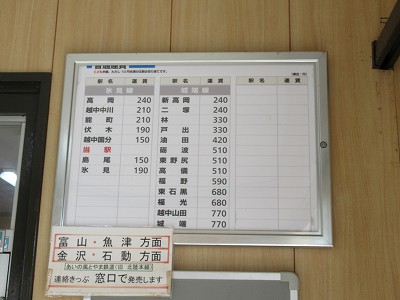 普通運賃
(単位:円)
氷見線
駅名 運賃
高岡 240
越中中川 210
能町 210
伏木 190
越中国分 150
当駅
島尾 150
氷見 190
城端線
駅名 運賃
新高岡 240
二塚 240
林 330
戸出 330
油田 420
砺波 510
東野尻 510
高儀 510
福野 590
東石黒 680
福光 680
越中山田 770
城端 770
駅名 運賃
富山・魚津 方面
金沢・石動 方面
(あいの風とやま鉄道(旧 北陸本線))
連絡きっぷ 窓口で発売します